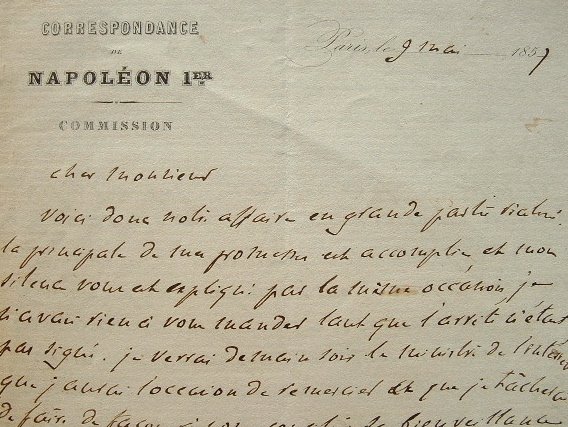 CORRESPONDANCE
DE
NAPOLÉON 1ER
COMMISSION
Paris, le 9 mai 1857
cher Monsieur
Voici donc notre affaire en grande partie réalisé.
la principale de ma promesse est accomplie et mon
silence vous est expliqué par la même occasion je
n'avais rien à vous mander tant que l'arrêté n'était
pas signé. je verrai demain soir le ministre de l'intérieur
que j'aurai l'occasion de remercier et que je tâcherai
de faire de façon à
bienveillance